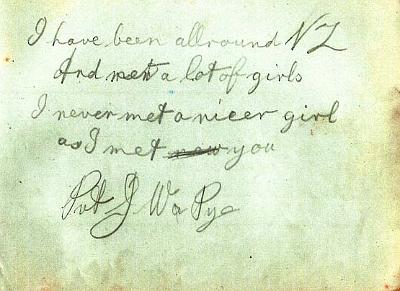 I have been allround NZ
And met a lot of girls
I never met a nicer girl
as I met you
Pvt J Wa Pye